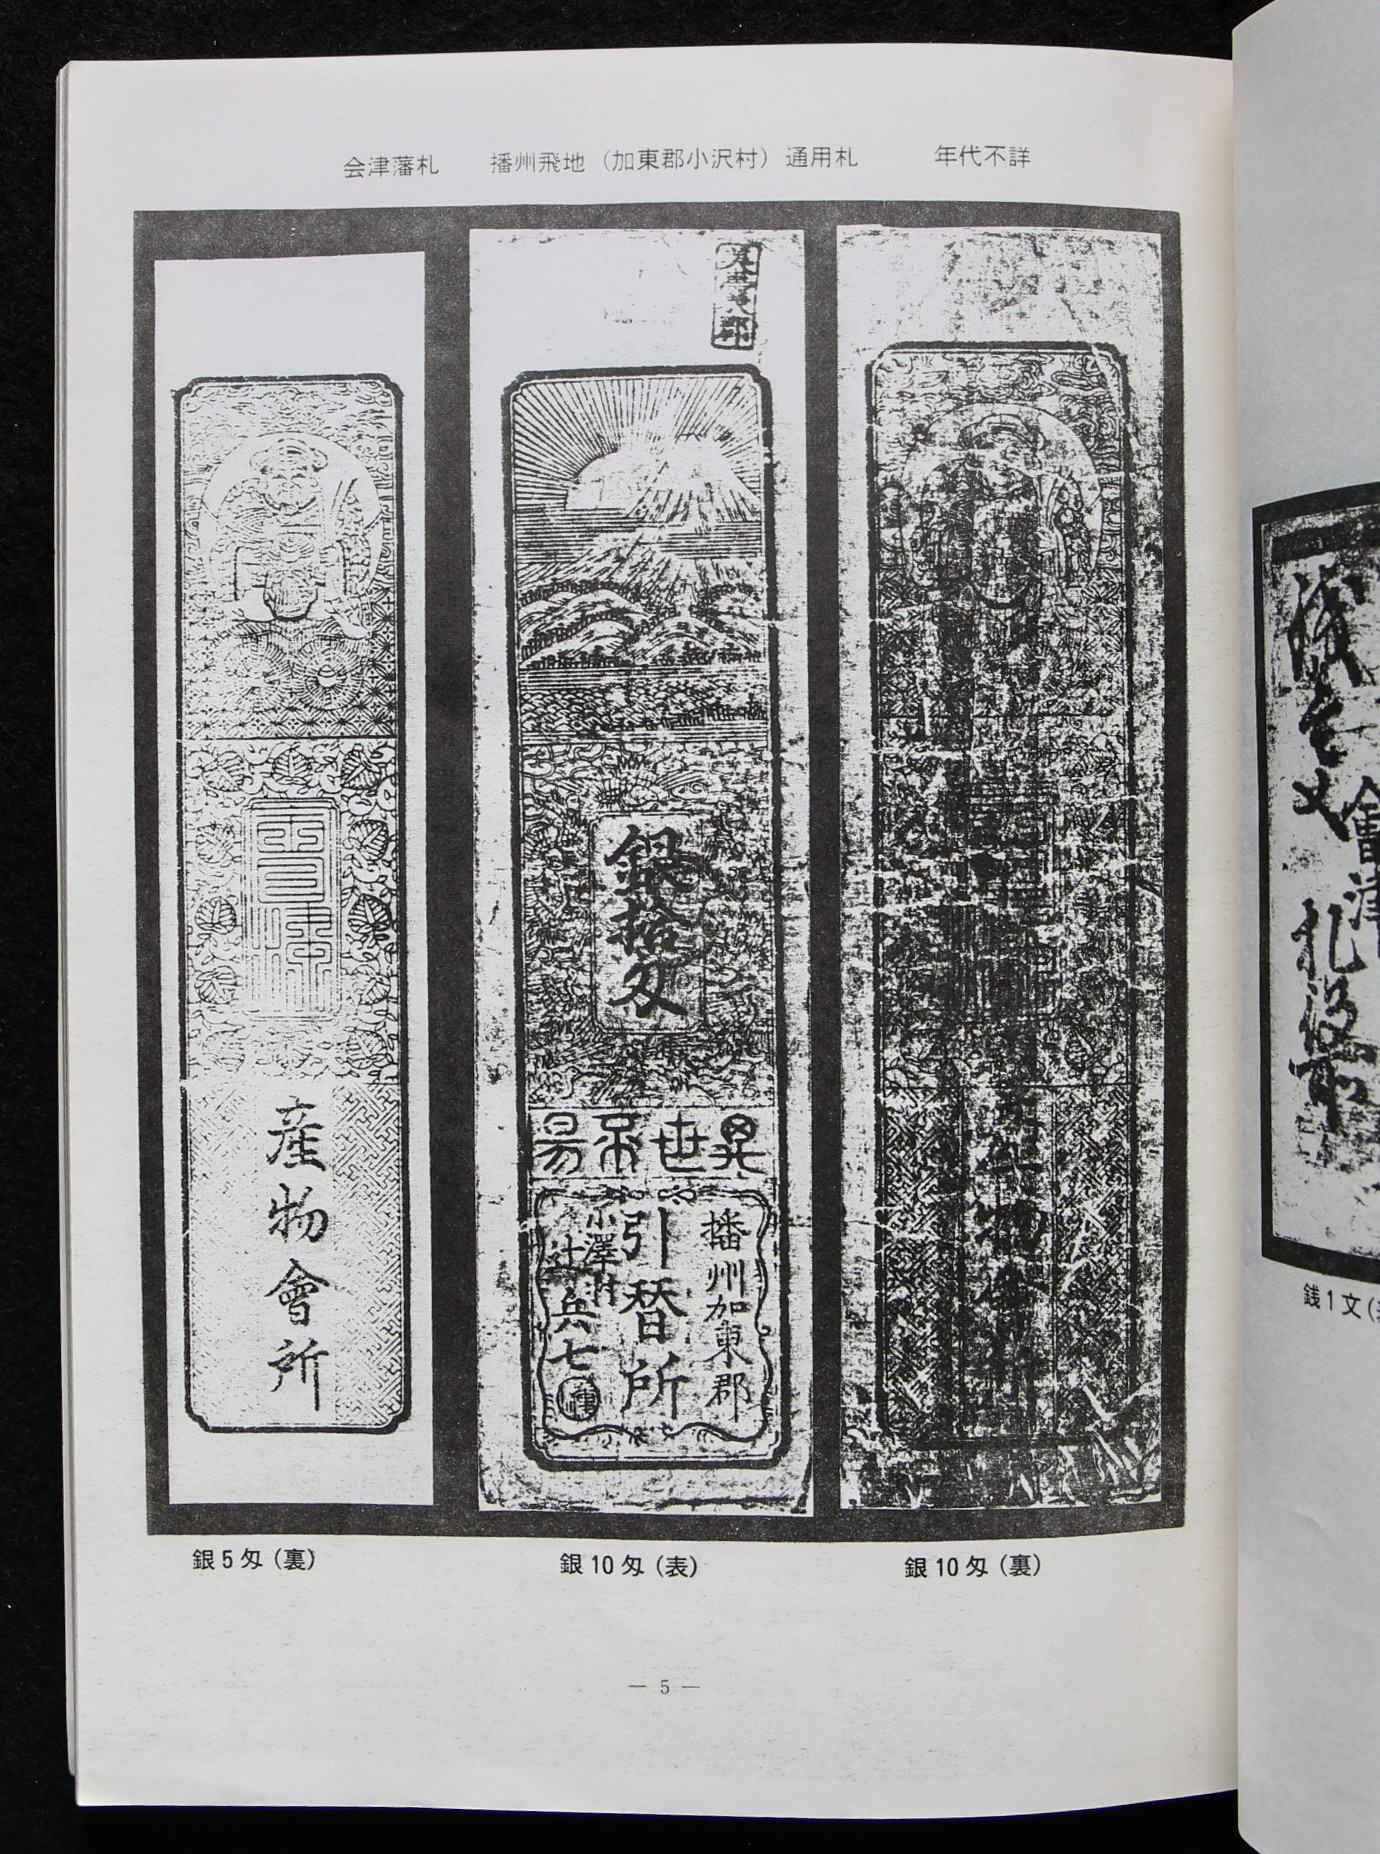 会津藩札 播州飛地（加東郡小沢村）通用札 年代不詳
産物會所
銀拾匁
易不世異
播州加東郡
引替所
小澤村
辻兵七
産物會所
銀5匁（裏）
銀10匁（表）
銀10匁（裏）
— 5 —
會津
札
銭1文